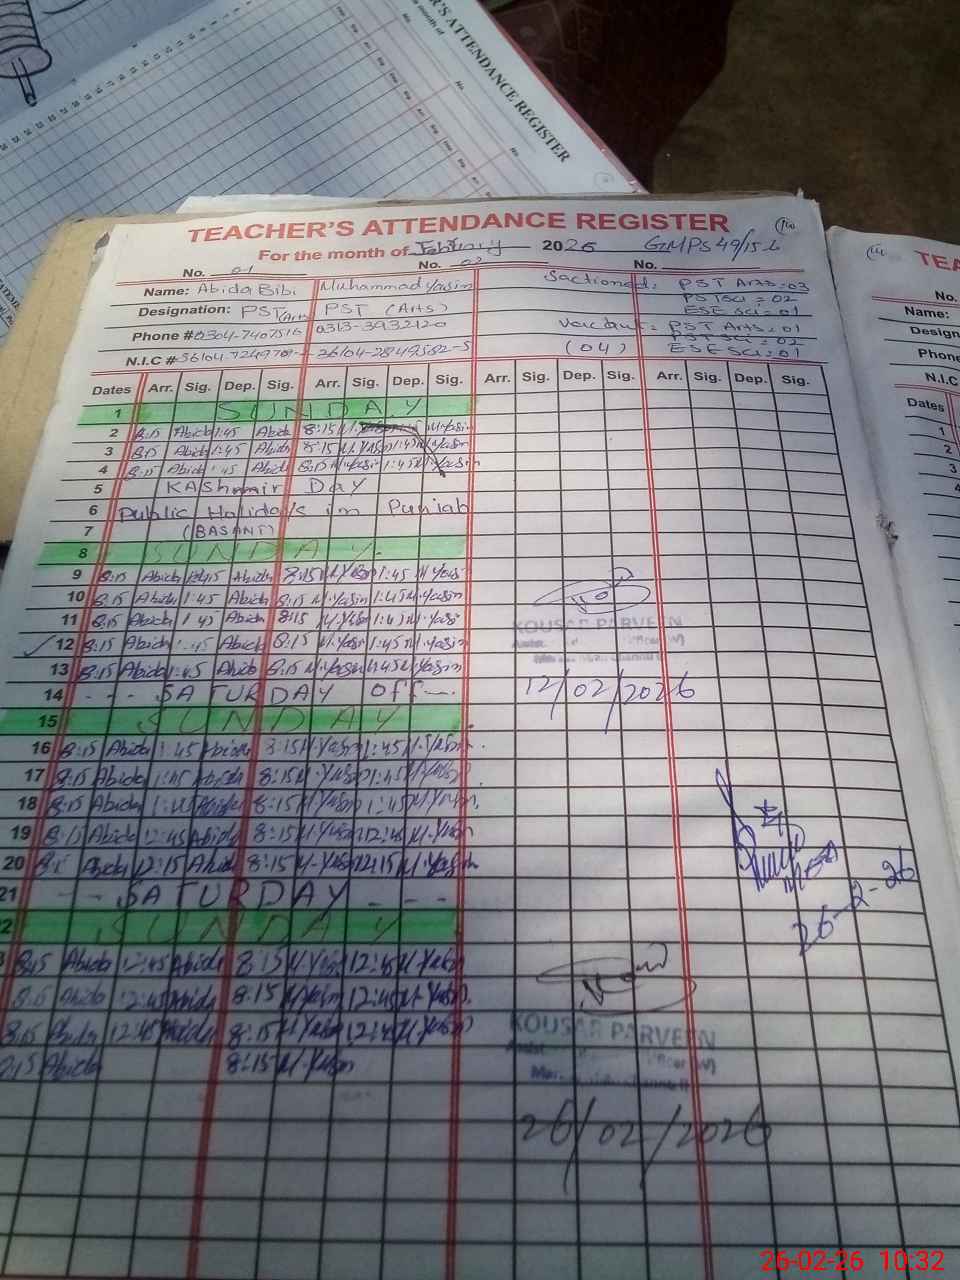 TEACHER'S ATTENDANCE REGISTER
TEACHER'S ATTENDANCE REGISTER
For the month of February 2026 GMPS 49/15-L
No. 01 No. 02 No.
Name: Abida Bibi Muhammad Yasin Sactioned: PST Arts = 03
PST Sci = 02
ESE Sci = 01
Designation: PST (Arts) PST (Arts)
Phone # 0304-7407516 0313-3932120 Vacant: PST Arts = 01
PST Sci = 02
N.I.C # (04) ESE Sci = 01
Dates Arr. Sig. Dep. Sig. Arr. Sig. Dep. Sig. Arr. Sig. Dep. Sig. Arr. Sig. Dep. Sig.
1 SUNDAY
2 8:15 Abida 1:45 Abida 8:15
3 8:15 Abida 1:45 Abida 8:15 M.Yasin 1:45 M.Yasin
4 8:15 Abida 1:45 Abida 8:15 M.Yasin 1:45 M.Yasin
5 KAShmir DAY
6 Public Holidays in Punjab
7 (BASANT)
8 SUNDAY
9 8:15 Abida Abida 8:15 M.Yasin 1:45 M.Yasin
10 8:15 Abida 1:45 Abida 8:15 M.Yasin 1:45 M.Yasin
11 8:15 Abida 1:45 Abida 8:15 M.Yasin 1:45 M.Yasin
12 8:15 Abida 1:45 Abida 8:15 M.Yasin 1:45 M.Yasin
13 8:15 Abida 1:45 Abida 8:15 M.Yasin 1:45 M.Yasin
KOUSAR PARVEEN
14 SATURDAY Off
12/02/2026
15 SUNDAY
16 8:15 Abida 1:45 Abida 8:15 M.Yasin 1:45 M.Yasin
17 8:15 Abida 1:45 Abida 8:15 M.Yasin 1:45 M.Yasin
18 8:15 Abida 1:45 Abida 8:15 M.Yasin 1:45 M.Yasin
19 8:15 Abida 12:45 Abida 8:15 M.Yasin 12:45 M.Yasin
20 Abida 12:15 Abida 8:15 M.Yasin 12:15 M.Yasin
21 SATURDAY
26-2-26
22 SUNDAY
8:15 Abida 12:45 Abida 8:15 M.Yasin 12:45 M.Yasin
Abida 12:45 Abida 8:15 M.Yasin 12:45 M.Yasin
8:15 Abida 12:45 Abida 8:15 M.Yasin 12:45 M.Yasin
8:15 Abida 8:15 M.Yasin
KOUSAR PARVEEN
26/02/2026
No.
Name:
Dates
1
2
3
26-02-26 10:32